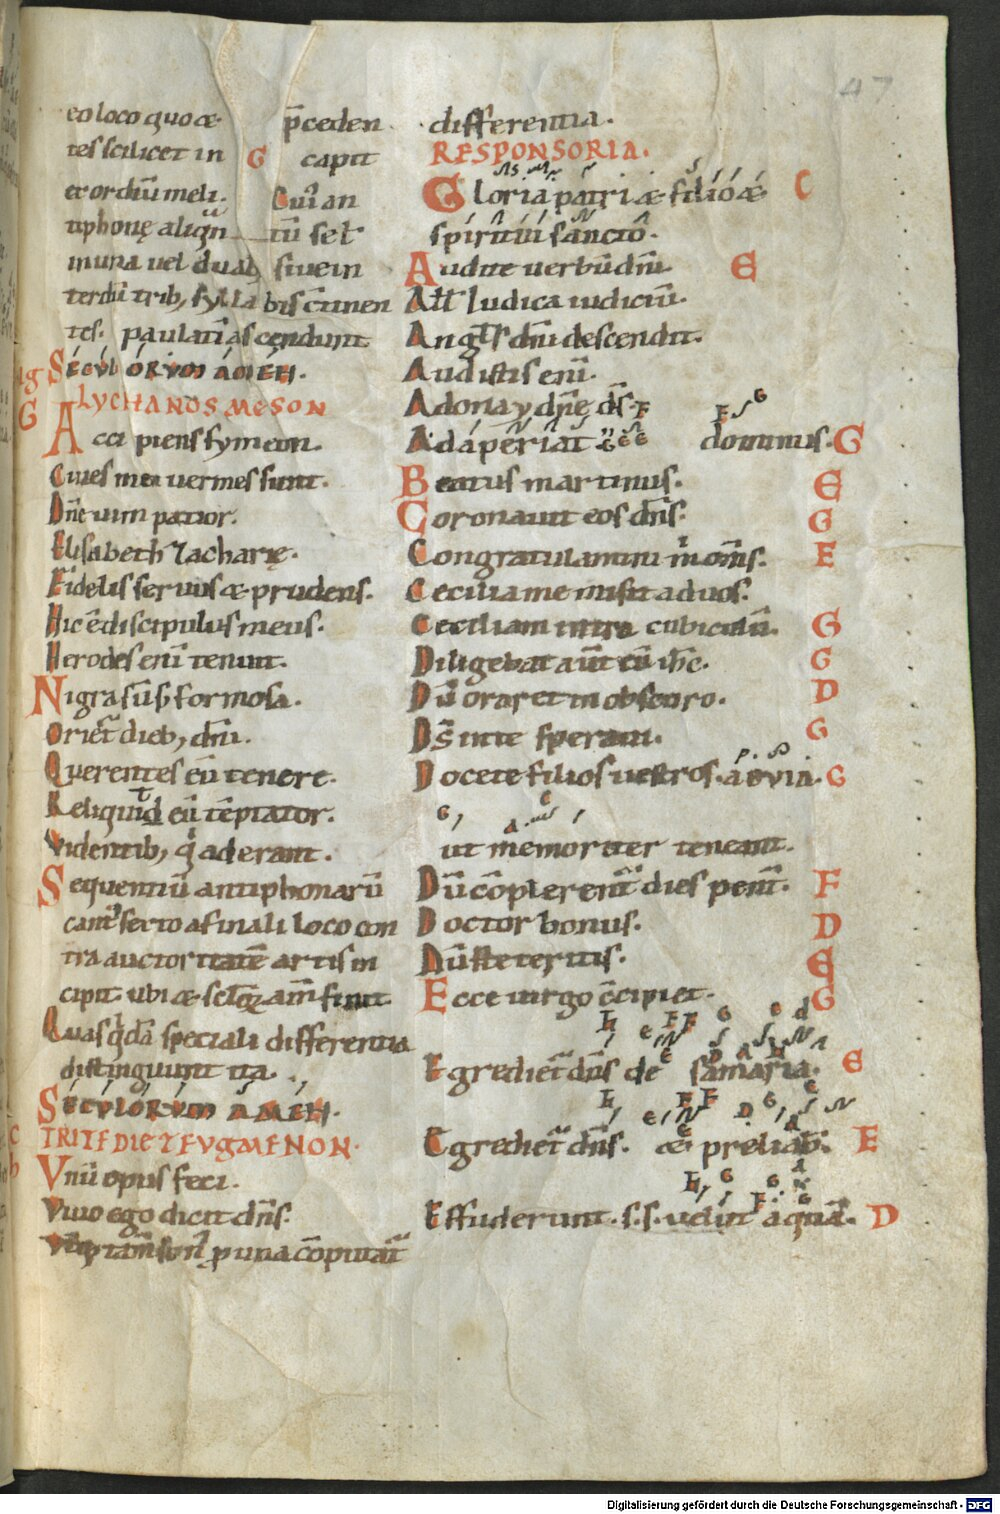 47
eo loco quo &  p̄ceden
tes scilicet in G capit
exordiū meli. Cui an
tiphonę aliqn tū sel
mura uel duab siue in
terdū trib, syllabis c̄tinen
tes. paulati ascendunt
SECVLORVM AMEN.
G LYCHANOS MESON
Accipiens symeon.
Cutes mea uermes sunt.
Dn̄e uim patior.
Elisabeth Zacharię.
Fidelis seruus & prudens.
Hic ē discipulus meus.
Herodes enī tenuit.
Nigra sū s formosa.
Oriet dieb, dn̄i.
Querentes eū tenere.
Reliquid eū tēptator.
Videntib, q aderant.
Sequentiū antiphonarū
cant serto a finali loco con
tra auctoritatē artis in
cipit. ubi &
Quas qdā speciali differentia
distinguunt ita.
SECVLORVM AMEN.
TRITE DIEZEVGMENON.
Vnū opus feci.
Viuo ego dicit dn̄s.
p una cōputat
differentia.
RESPONSORIA.
Gloria patri & filio & C
spiritui sancto.
Audite uerbū dn̄i. E
All Iudica iudiciū.
Angls dn̄i descendit.
Audistis enī.
Adonay dn̄e ds. F F G
Adaperiat dominus. G
Beatus martinus. E
Coronauit eos dn̄s. G
Congratulamini m om̄s. E
Cecilia me misit ad uos.
Ceciliam intra cubiculū. G
Diligebat aut eū ih̄c. G
Dū oraret in obscuro. D
Ds̄ in te speraui. G
Docete filios uestros. aevia. G
G
ut memoriter teneant.
Dū cōplerent dies pent. F
Doctor bonus. D
Dū steteritis. E
Ecce uirgo c̄cipiet. G
Egrediet dn̄s de samaria. E
Egrediet dn̄s. & preliab. E
Effuderunt. s. s. uelut aquā. D
Digitalisierung gefördert durch die Deutsche Forschungsgemeinschaft - DFG